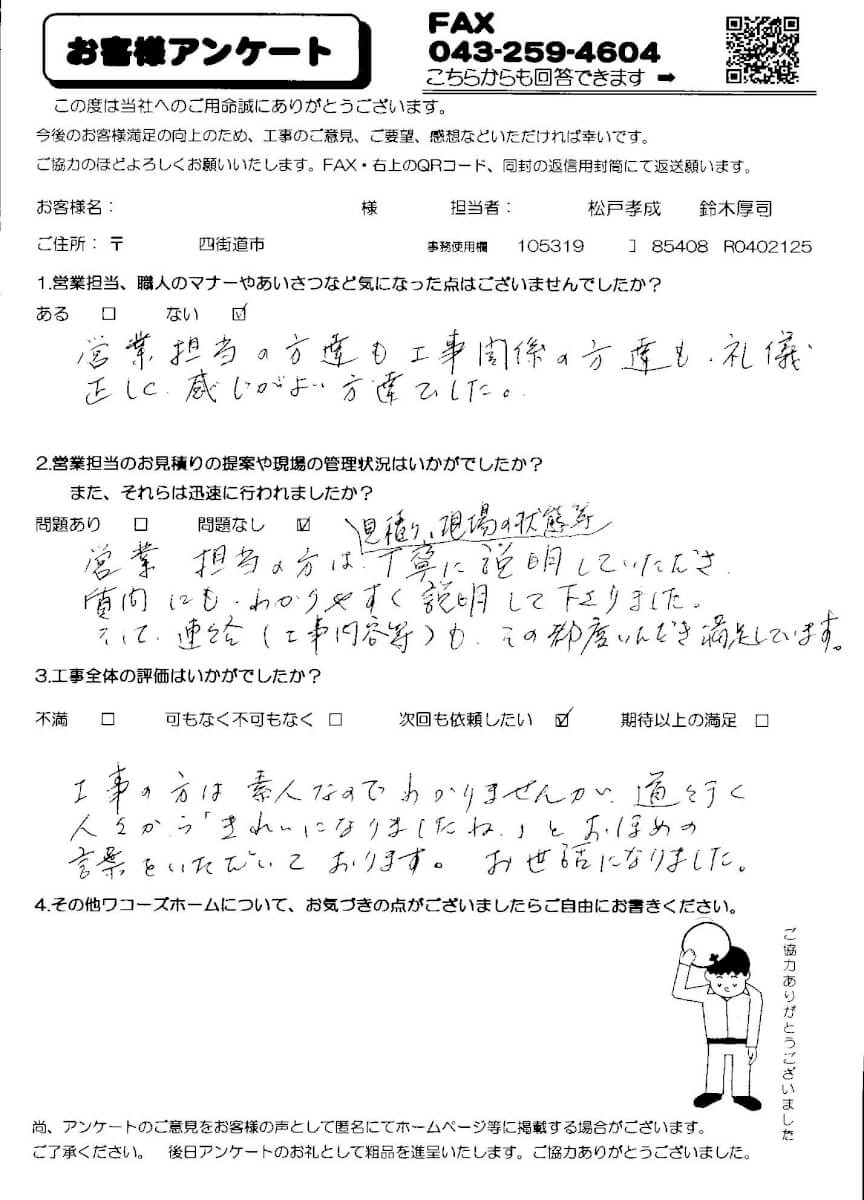 お客様アンケート
FAX
043-259-4604
こちらからも回答できます ➡
この度は当社へのご用命誠にありがとうございます。
今後のお客様満足の向上のため、工事のご意見、ご要望、感想などいただければ幸いです。
ご協力のほどよろしくお願いいたします。FAX・右上のQRコード、同封の返信用封筒にて返送願います。
お客様名： 様 担当者： 松戸孝成 鈴木厚司
ご住所：〒 四街道市 事務使用欄 105319 85408 R0402125
1.営業担当、職人のマナーやあいさつなど気になった点はございませんでしたか？
ある □ ない ☑
営業担当の方達も工事関係の方達も、礼儀
正しく、感じがよい方達でした。
2.営業担当のお見積りの提案や現場の管理状況はいかがでしたか？
また、それらは迅速に行われましたか？
問題あり □ 問題なし ☑
見積り、現場の状態等
営業担当の方は、丁寧に説明していただき、
質問にも、わかりやすく説明して下さりました。
そして、連絡（工事内容等）も、その都度いただき満足しています。
3.工事全体の評価はいかがでしたか？
不満 □ 可もなく不可もなく □ 次回も依頼したい ☑ 期待以上の満足 □
工事の方は素人なのでわかりませんが、道を行く
人々から「きれいになりましたね。」とおほめの
言葉をいただいております。 お世話になりました。
4.その他ワコーズホームについて、お気づきの点がございましたらご自由にお書きください。
ご協力ありがとうございました
尚、アンケートのご意見をお客様の声として匿名にてホームページ等に掲載する場合がございます。
ご了承ください。 後日アンケートのお礼として粗品を進呈いたします。ご協力ありがとうございました。